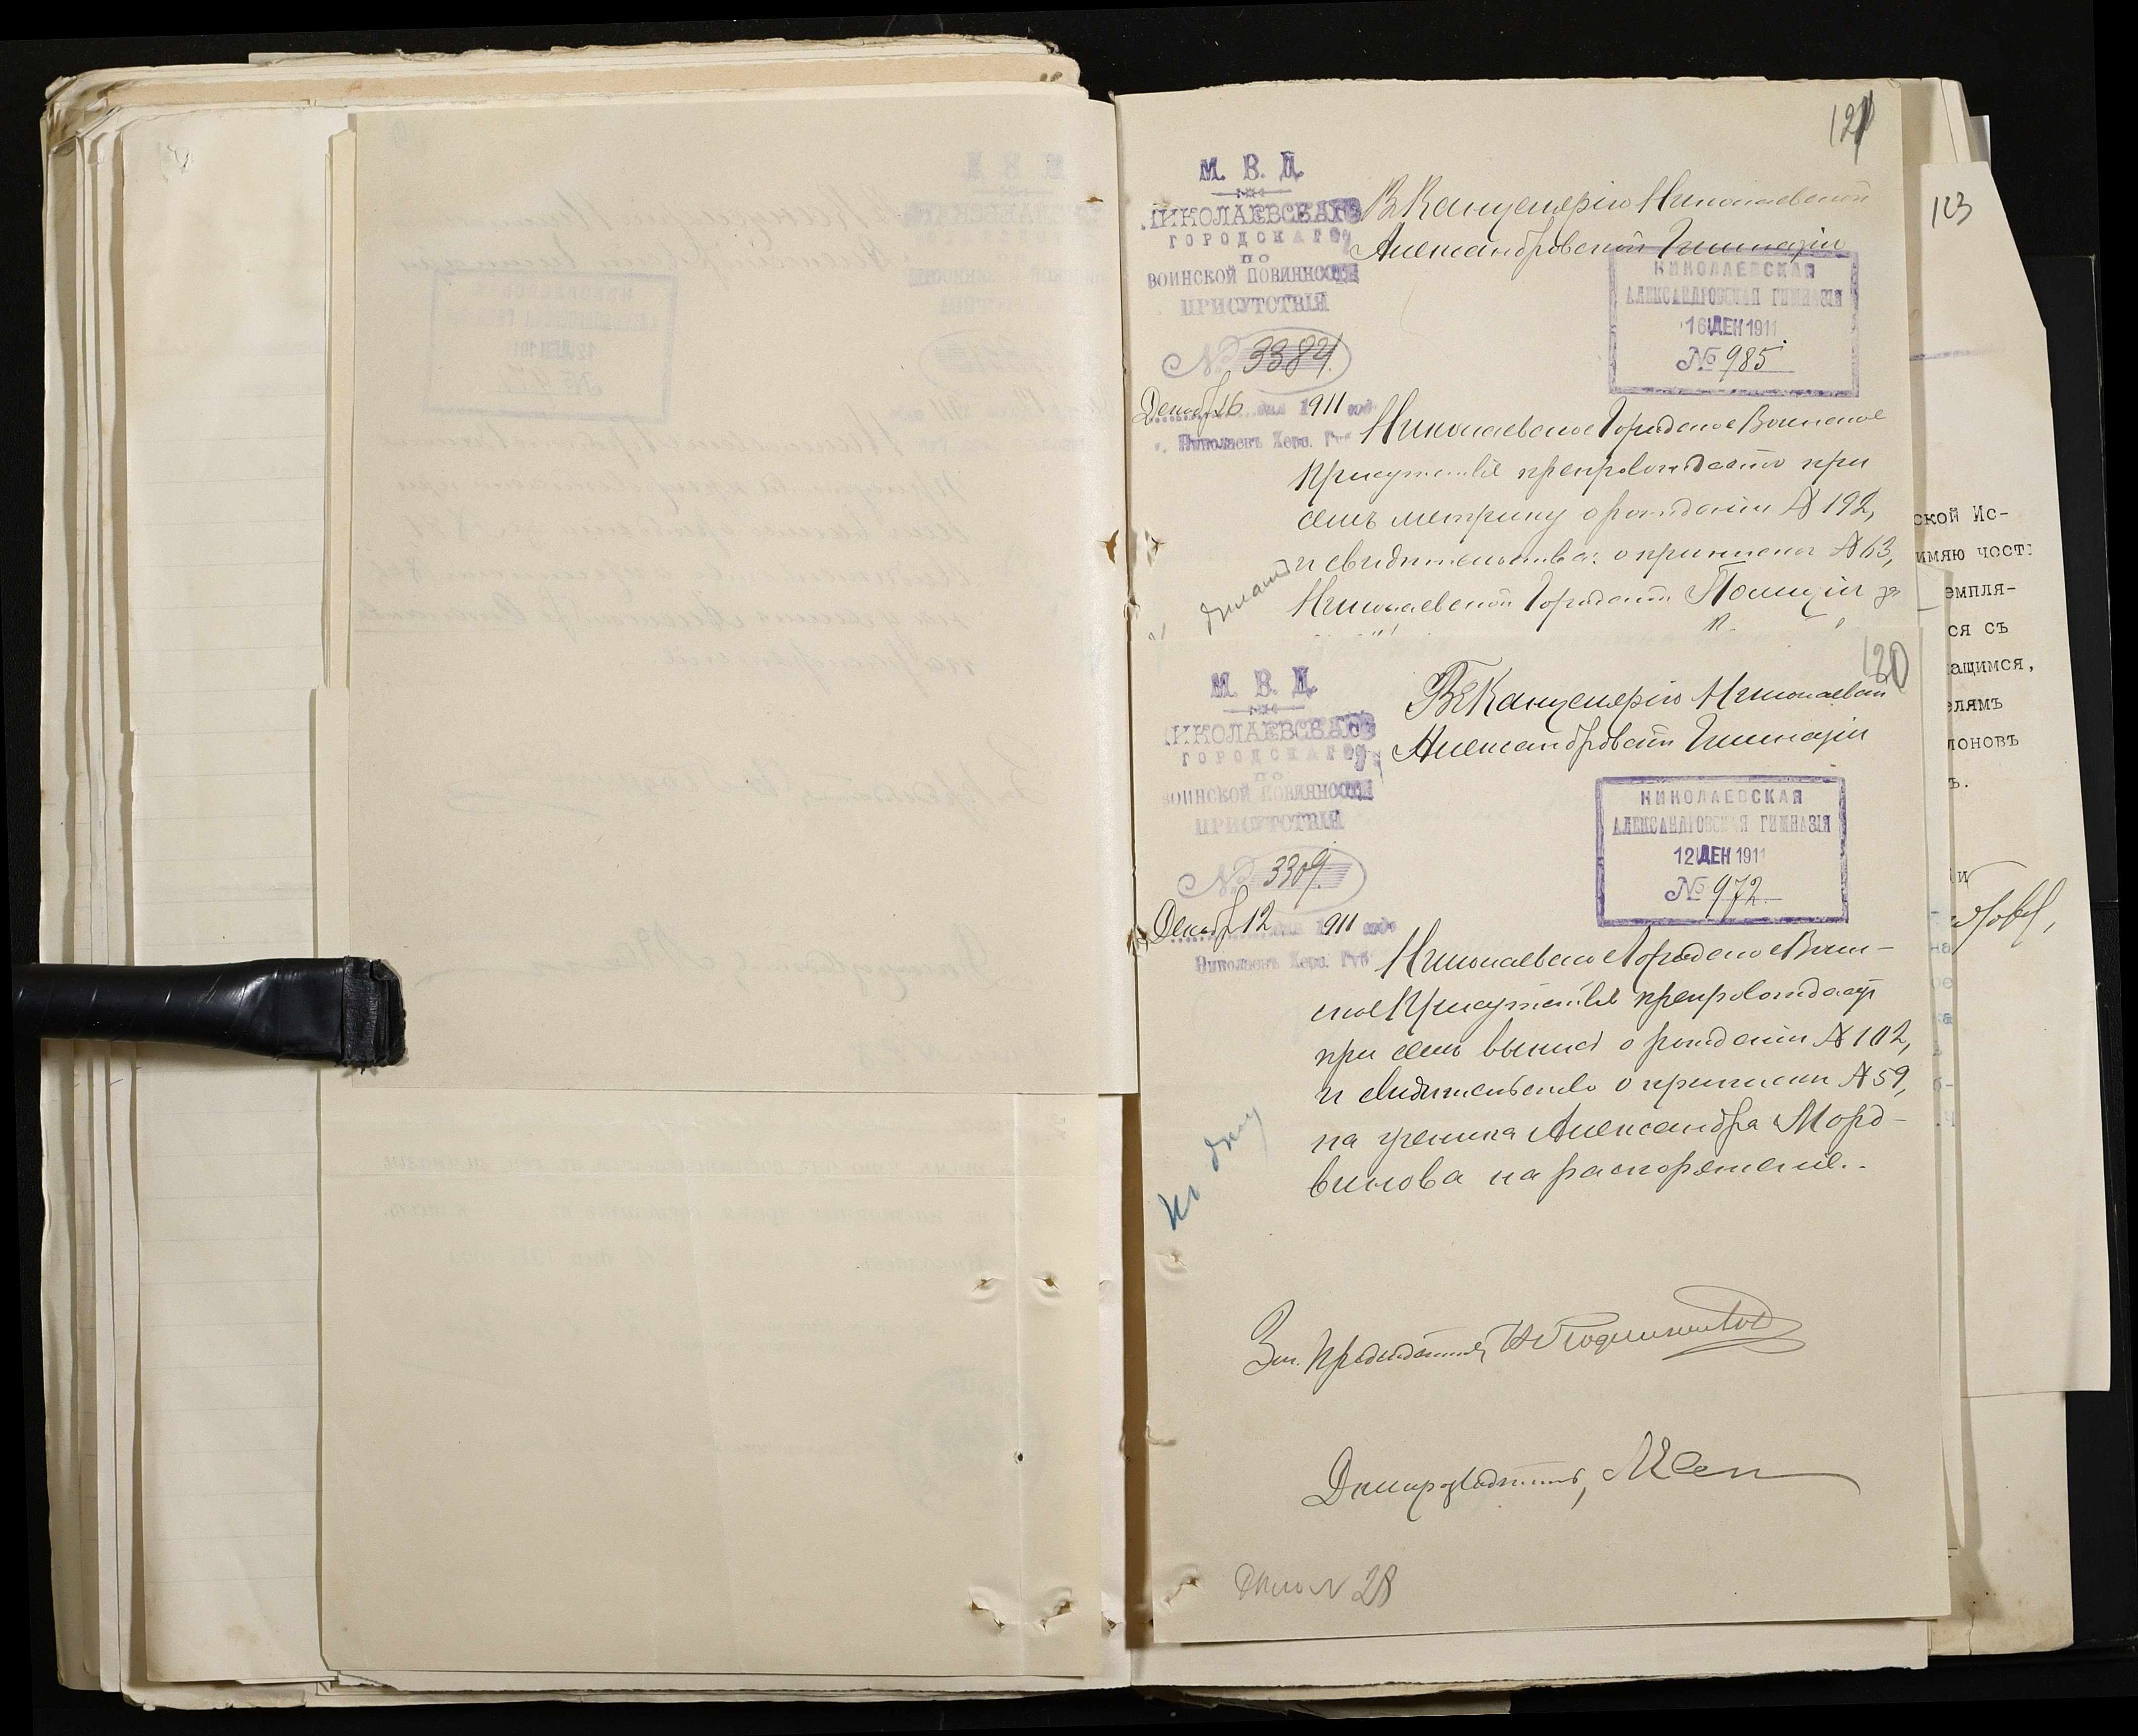 121
М. В. Д.
НИКОЛАЕВСКАГО
ГОРОДСКАГО
ПО
ВОИНСКОЙ ПОВИННОСТИ
ПРИСУТСТВІЯ
№ 3384.
Декабр 16 дня 1911 год
Николаевъ Херс. Губ
Въ Канцелярію Николаевской
Александровской Гимназіи
НИКОЛАЕВСКАЯ
АЛЕКСАНДРОВСКАЯ ГИМНАЗІЯ
16 ДЕК 1911
№ 985
Николаевское Городское Воинское
Присутствіе препровождаетъ при
семъ метрику о рожденіи № 192,
и свидѣтельства: о припискѣ № 63,
Николаевской Городской Полиціи за
120
М. В. Д.
НИКОЛАЕВСКАГО
ГОРОДСКАГО
ПО
ВОИНСКОЙ ПОВИННОСТИ
ПРИСУТСТВІЯ
№ 3309.
Декабр 12 дня 1911 года
Николаевъ Херс. Губ
Въ Канцелярію Николаевской
Александровской Гимназіи
НИКОЛАЕВСКАЯ
АЛЕКСАНДРОВСКАЯ ГИМНАЗІЯ
12 ДЕК 1911
№ 972.
Николаевское Городское Воин-
ское Присутствіе препровождаетъ
при семъ выпись о рожденіи № 102,
и свидѣтельство о припискѣ № 59,
на ученика Александра Морд-
винова на распоряженіе.
Къ дѣлу
Зам. Предсѣдателя,
Дѣлопроизводитель,
Дѣло № 28
123
ской Ис-
имяю чест
емпля-
ся съ
ащимся,
елямъ
лоновъ
ъ.
и